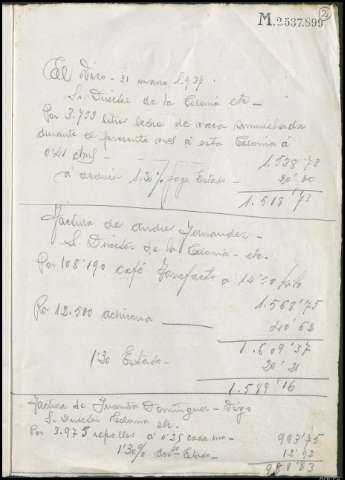 2
M.2537.899
El Viso - 31 marzo 1.937.
Sr. Director de la Colonia etc -
Por 3.753 litros leche de vaca suministrada
durante el presente mes á esta Colonia á
0'41 ctms 1.538'73
á deducir 1.30% pago Estado - 20'00
1.518'73
Factura de Fernandez -
Sr. Director de la Colonia - etc.
Por 108'190 café á 14'50
1.568'75
Por 12.500 achicoria 40'62
1.609'37
1'30 Estado - 20'21
1.589'16
Factura de Dominguez - Vigo
Sr. Director Colonia etc.
Por 3.975 repollos á 0'25 cada uno - 993'75
1'30% Estado - 12'92
980'83